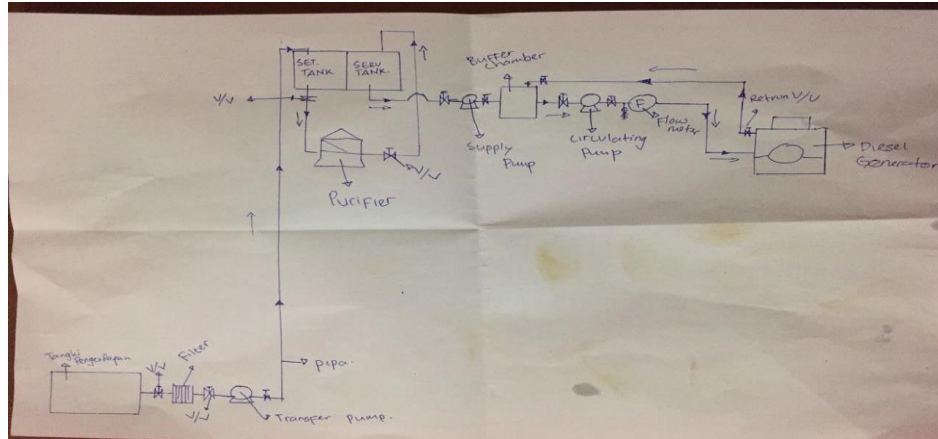 SET.
TANK
SERV
TANK.
V/V
Purifier
V/V
Buffer
chamber
Supply
Pump
Circulating
Pump
F
Flow
meter
Retrun V/V
Diesel
Generator
Tangki
Pengendapan
V/V
Filter
V/V
Transfer pump.
pipa.